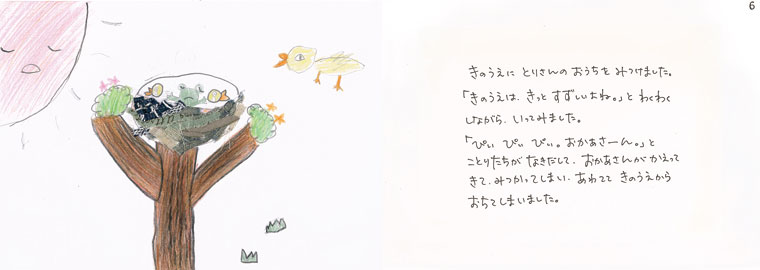 6
きのうえに とりさんの おうちを みつけました。
「きのうえは、きっと すずしいよね。」と わくわく
しながら、いってみました。
「ぴぃ ぴぃ ぴぃ。おかあさーん。」と
ことりたちが なきだして、おかあさんが かえって
きて、みつかってしまい、あわてて きのうえから
おちてしまいました。